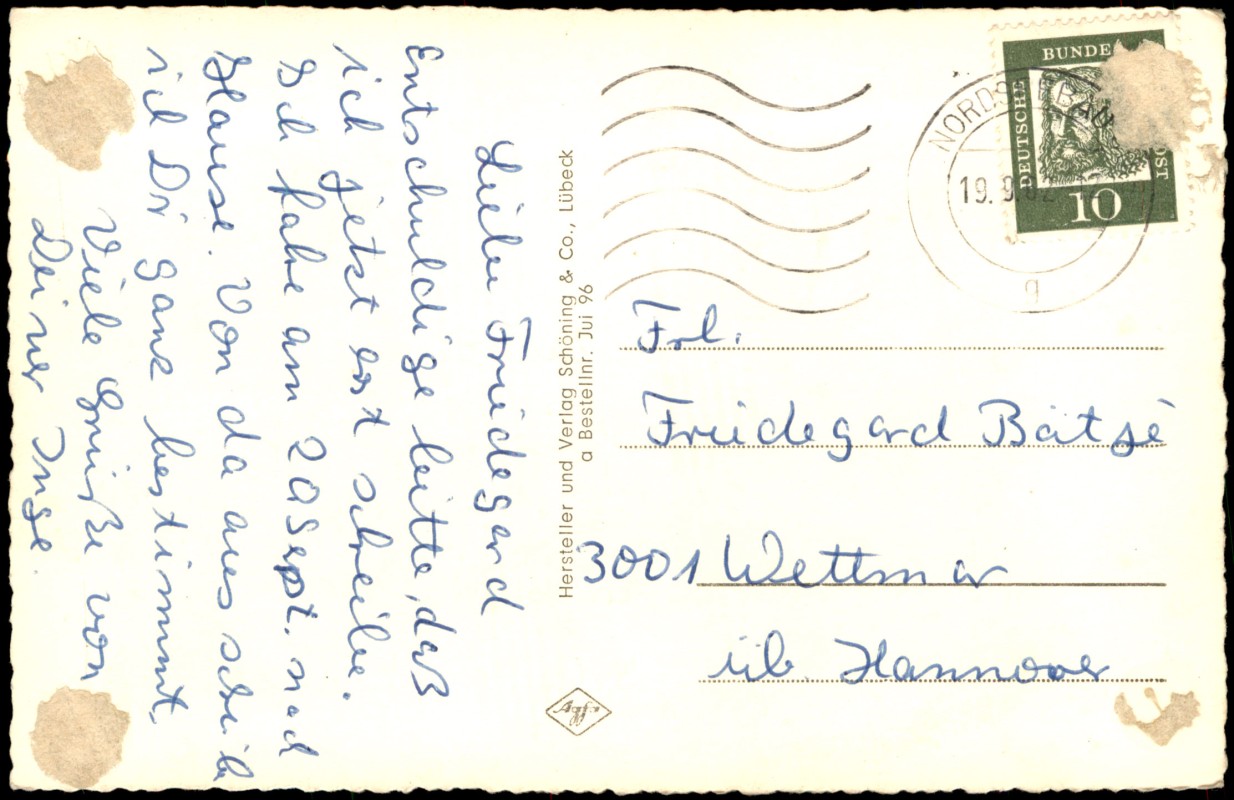 Liebe Friedegard
Entschuldige bitte, daß
ich jetzt erst schreibe.
Ich fahre am 20 Sept. nach
Hause. Von da aus schreib
ich Dir ganz bestimmt.
Viele Grüße von
Deiner Inge
Hersteller und Verlag Schöning & Co., Lübeck
a Bestellnr. Jui 96
Agfa
DEUTSCHE BUNDE
10
19. 9. 62
a
Frl.
Friedegard
3001 Wettmar
üb. Hannover